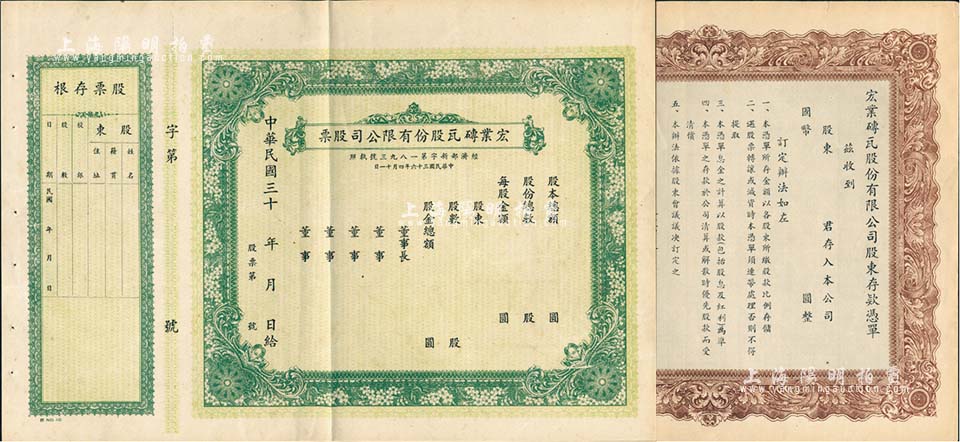 上海陽明拍賣
www.yangmingauction.com
宏業磚瓦股份有限公司股東存款憑單
茲收到
股東　君存入本公司
國幣　圓整
訂定辦法如左
一、本憑單所存金額以各股東所繳股款比例存儲
二、遇股票轉讓或減資時本憑單須連帶處理否則不得
提取
三、本憑單息金之計算以股款(包括股息及紅利)為準
四、本憑單之存款於公司清算或解散時優先股款而受
清償
五、本辦法依據股東會議議決訂定之
宏業磚瓦股份有限公司股票
經濟部新字第一八九三號執照
中華民國三十六年四月十一日
股本總額　圓
股份總數　股
每股金額　圓
股東
股數　股
股金總額　圓
董事長
董事
董事
董事
董事
中華民國三十　年　月　日給
股票第　號
字第　號
股票存根
股東
姓名
籍貫
住址
股銀
股數
日期
民國　年　月　日
上海陽明拍賣
www.yangmingauction.com
上海陽明拍賣
www.yangmingauction.com